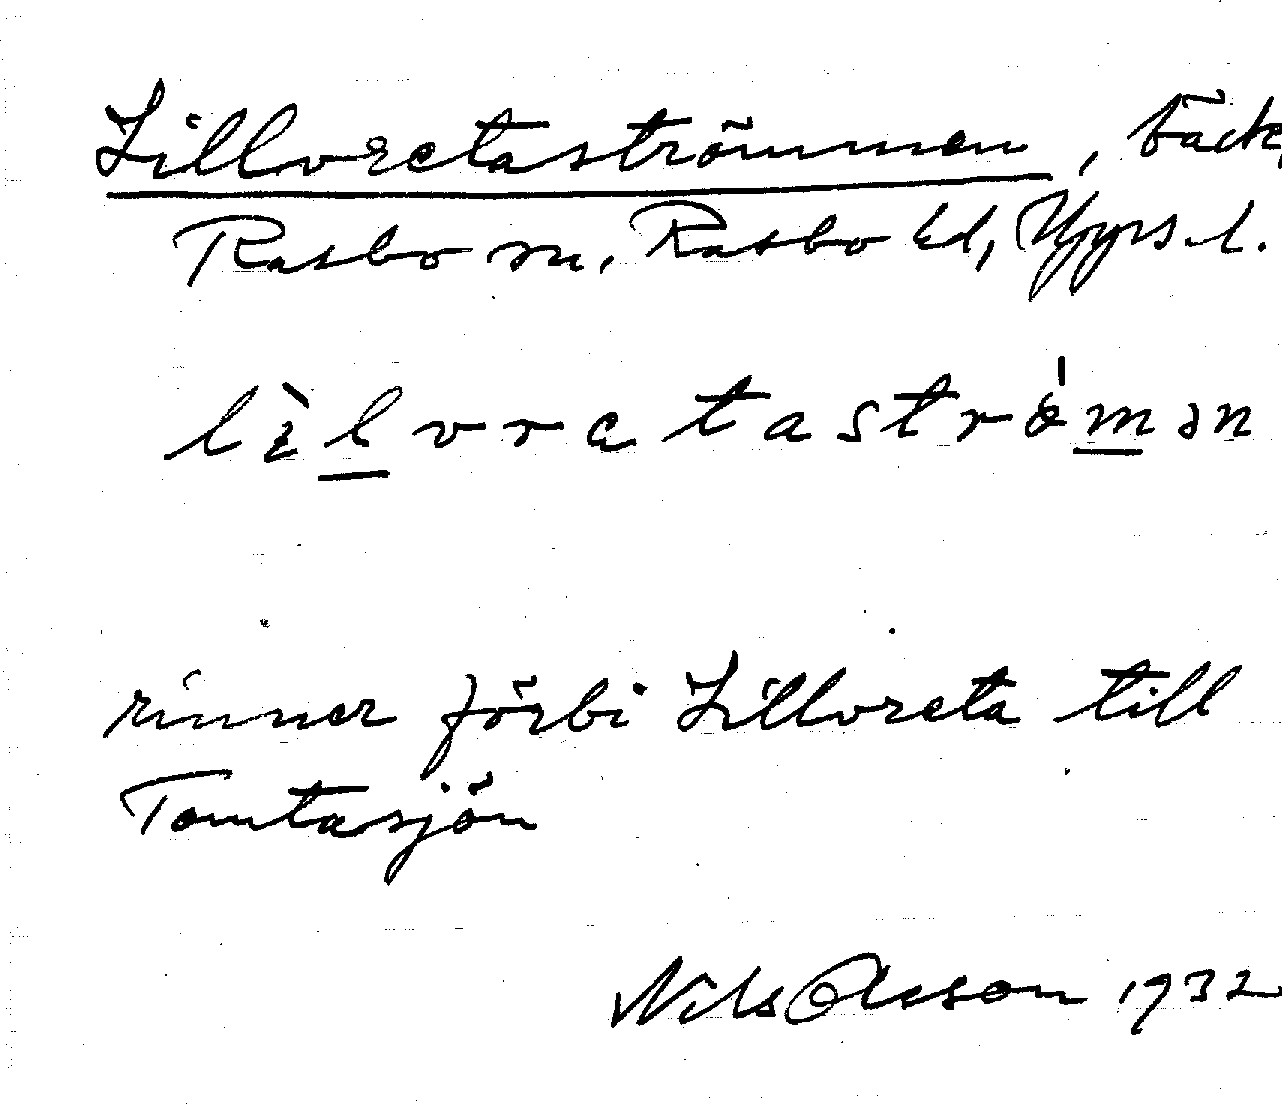 Lillvretaströmmen, bäck,
Rasbo sn, Rasbo hd, Upps. l.
lìlvretaströ́mən
rinner förbi Lillvreta till
Tomtasjön
Nils Olsson 1932